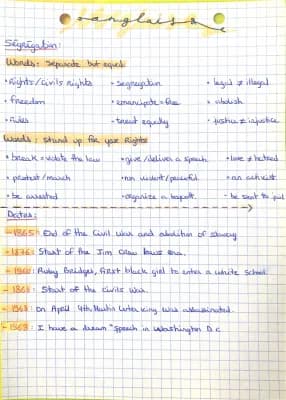 anglais
Ségrégation:
Words: Separate but equal
• Rights/Civils Rights • segregation • legal ≠ illegal
• freedom • emancipate = free • abolish
• Rules • treat equally • justice ≠ injustice
Words: Stand up for your Rights
• break = violate the law • give/deliver a speech • love ≠ hatred
• protest/march • non violent/peaceful • an activist
• be arrested • organize a boycott • be sent to jail
Dates:
- 1865: End of the Civil War and abolition of slavery
- 1876: Start of the Jim Crow laws era.
- 1960: Ruby Bridges, first black girl to enter a white School.
- 1861: Start of the Civils War.
- 1968: On April 4th, Martin Luther King was assassinated.
- 1963: I have a dream" Speech in Washington D.C